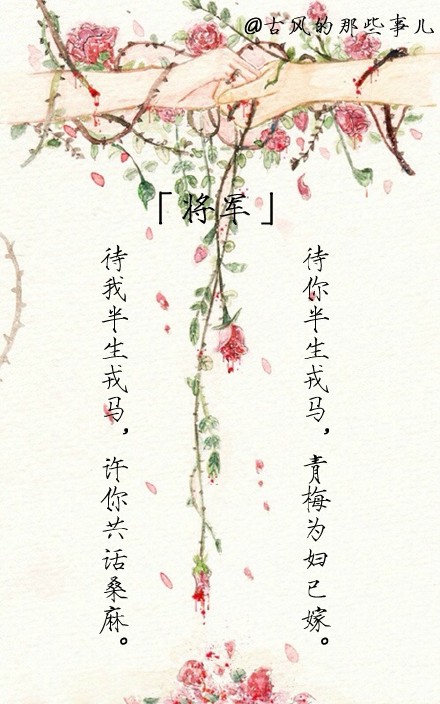 @古风的那些事儿
「将军」
待我半生戎马，许你共话桑麻。
待你半生戎马，青梅为妇已嫁。